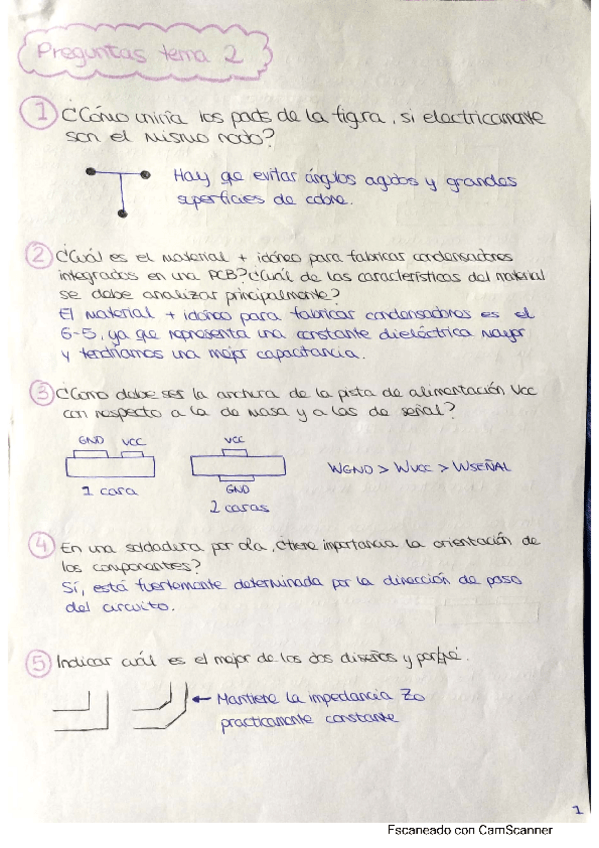 Preguntas tema 2
1 ¿Cómo uniría los pads de la figra, si electricamente
son el mismo nodo?
Hay que evitar ángulos agudos y grandes
superficies de cobre.
2 ¿Cuál es el material + idóneo para fabricar condensadores
integrados en una PCB? ¿Cuál de las características del material
se debe analizar principalmente?
El material + idóneo para fabricar condensadores es el
G-5, ya que representa una constante dieléctrica mayor
y tendríamos una mejor capacitancia.
3 ¿Cómo debe ser la anchura de la pista de alimentación Vcc
con respecto a la de masa y a las de señal?
GND VCC
1 cara
VCC
GND
2 caras
WGND > WVCC > WSEÑAL
4 En una soldadura por ola, ¿tiene importancia la orientación de
los componentes?
Sí, está fuertemente determinada por la dirección de paso
del circuito.
5 Indicar cuál es el mejor de los dos diseños y porqué.
← Mantiene la impedancia Zo
practicamente constante
1
Escaneado con CamScanner